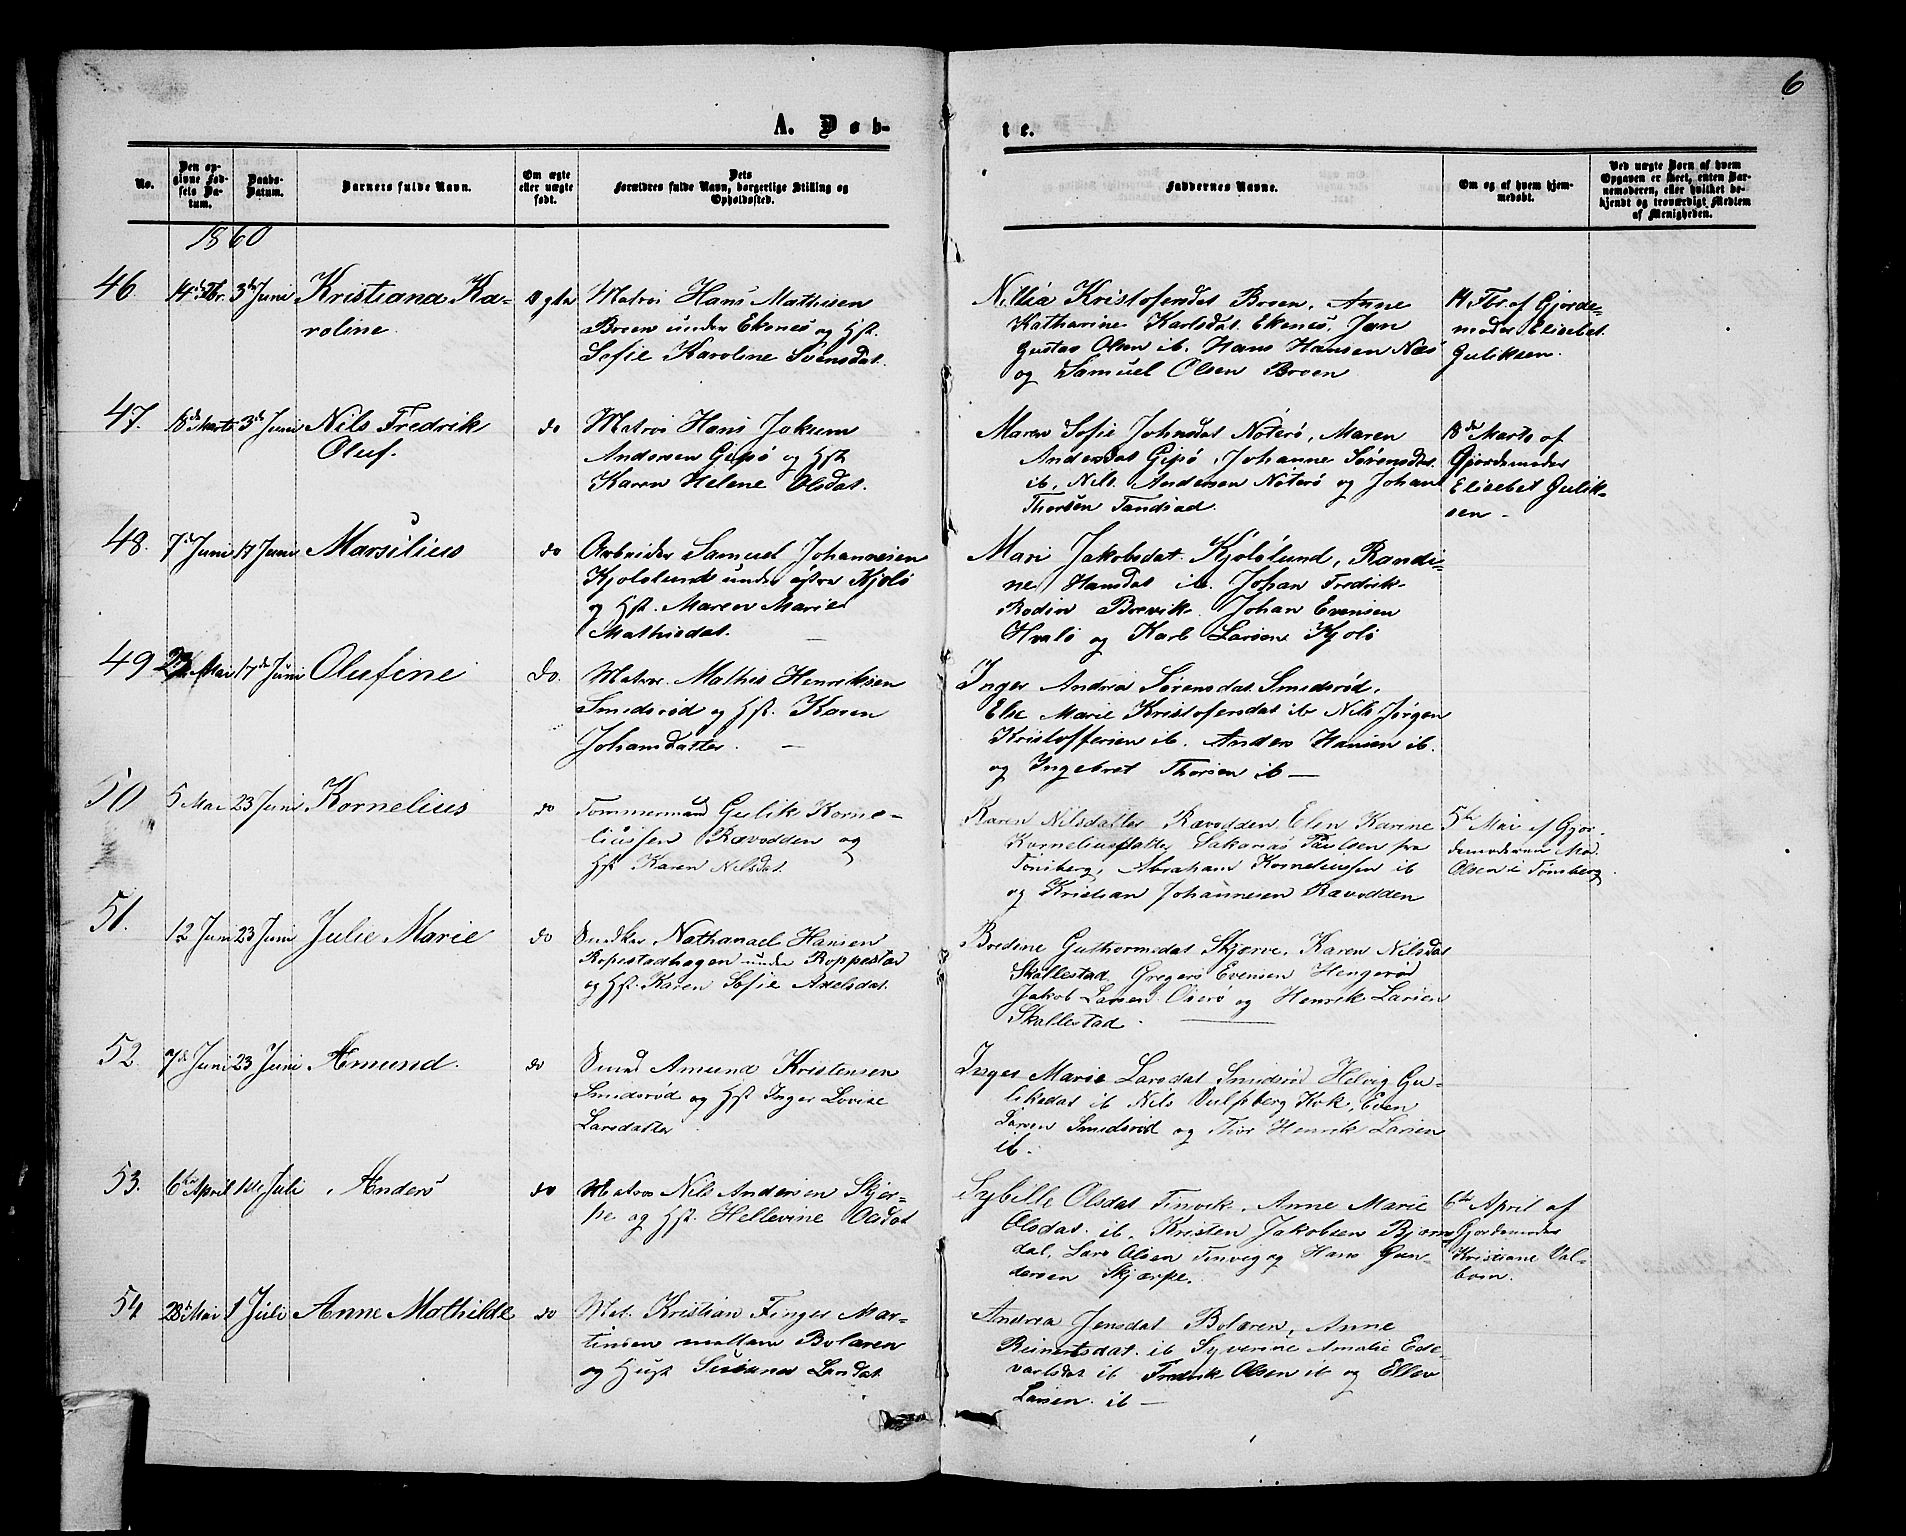 6
A. Døb-
te.
No.
Den op-
givne Fød-
sels Da-
tum.
Daabs-
Datum.
Barnets fulde Navn.
Om ægte
eller uægte
født.
Dets
Forældres fulde Navn, borgerlige Stilling og
Opholdssted.
Faddernes Navne.
Om og af hvem hjem-
medøbt.
Ved uægte Børn af hvem
Opgaven er skeet, enten Bar-
nemoderen, eller hvilket be-
kjendt og troværdigt Medlem
af Menigheden.
1860
46. 14de Fbr. 3de Juni Kristiana Ka-
roline.
Ægte
Matros Hans Mathisen
Broen under Ekenes og Hst.
Sofie Karoline Svensdat.
Kristofersdat Broen, Anne
Katharine Karlsdat. Ekenes, Jan
Gustav Olsen ib. Hans Hansen Næs
og Samuel Olsen Broen
14 Fbr af Gjorde-
moder Elisebet
Guliksen.
47. 18de Marts 3de Juni Nils Fredrik
Oluf.
do
Matros Hans Jokum
Andersen Gipø og Hst
Karen Helene Olsdat.
Maren Sofie Johnsdat Nøterø, Maren
Andersdat Gipø, Johanne Sørensdat.
ib, Nils Andersen Nøterø og Johan
Thorsen Tandstad.
18de Marts af
Gjordemoder
Elisebet Gulik-
sen -
48. 7de Juni 17 Juni Marsilius
do
Arbeider Samuel Johannesen
Kjøløslund under østre Kjølø
og Hst. Maren Marie
Mathisdat. -
Mari Jakobsdat. Kjøløslund, Randi-
ne Hansdat ib. Johan Fredrik
Bodin Brevik. Johan Evensen
Hvalø og Karl Larsen Kjølø
49 Mai 17de Juni Olufine
do.
Matros. Mathis Henriksen
Smidsrød og Hst. Karen
Johansdatter. -
Inger Andrea Sørensdat. Smidsrød,
Else Marie Kristofersdat ib Nils Jørgen
Kristoffersen ib. Anders Hansen ib.
og Ingebret Thorsen ib -
50 5 Mai 23 Juni Kornelius
do
Tømmermand Gulik Korne-
liussen Rævodden og
Hst Karen Nilsdat.
Karen Nilsdatter Rævodden Elen Karine
Korneliusdatter Sakarias Paulsen fra
Tønsberg, Abraham Korneliussen ib
og Kristian Johannesen Rævodden
5te Mai af Gjor-
demoderen Mad.
Olsen i Tønsberg
51. 12 Juni 23 Juni Julie Marie
do
Snedker Nathanael Hansen
Ropestadhagen under Roppestad
og Hst. Karen Sofie Axelsdat.
Bredine Guthormsdat Skjærve, Karen Nilsdat
Skallestad, Gregers Evensen Hengsrød
Jakob Larsen Oserø og Henrik Larsen
Skallestad.
52. 7de Juni 23 Juni Amund.
do
Smed Amund Kristensen
Smidsrød og Hst Inger Lovise
Larsdatter
Inger Marie Larsdat Smidsrød Helvig Gu-
liksdat ib Nils Vulfsberg Hok, Even
Larsen Smidsrød og Thor Henrik Larsen
ib.
53. 6te April 1ste Juli Anders
do
Matros Nils Andersen Skjer-
pe og Hst. Hellevine Olsdat
Sybille Olsdat Tinvik. Anne Marie
Olsdat. ib. Kristen Jakobsen Bjørns-
dal, Lars Olsen Tinvig og Hans Gun-
dersen Skjærpe.
6te April af
Gjordemoder
Kristiane Val-
born.
54 28de Mai 1 Juli Anne Mathilde
do
Mat. Kristian Finger Mar-
tinsen mellem Bolæren
og Hust Susanna Larsdat
Andrea Jensdat Bolæren, Anne
Reinertsdat. ib Syverine Amalie Ede-
vartsdat ib Fredrik Olsen ib og Ellev
Larsen. ib -